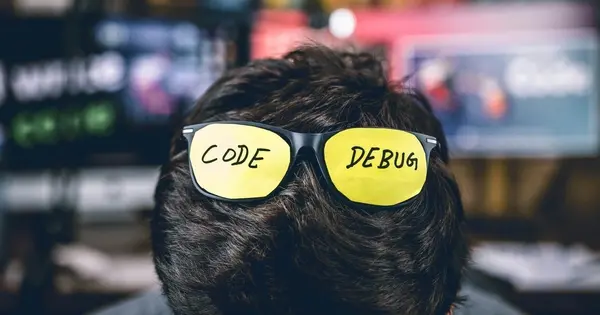 CODE
DEBUG